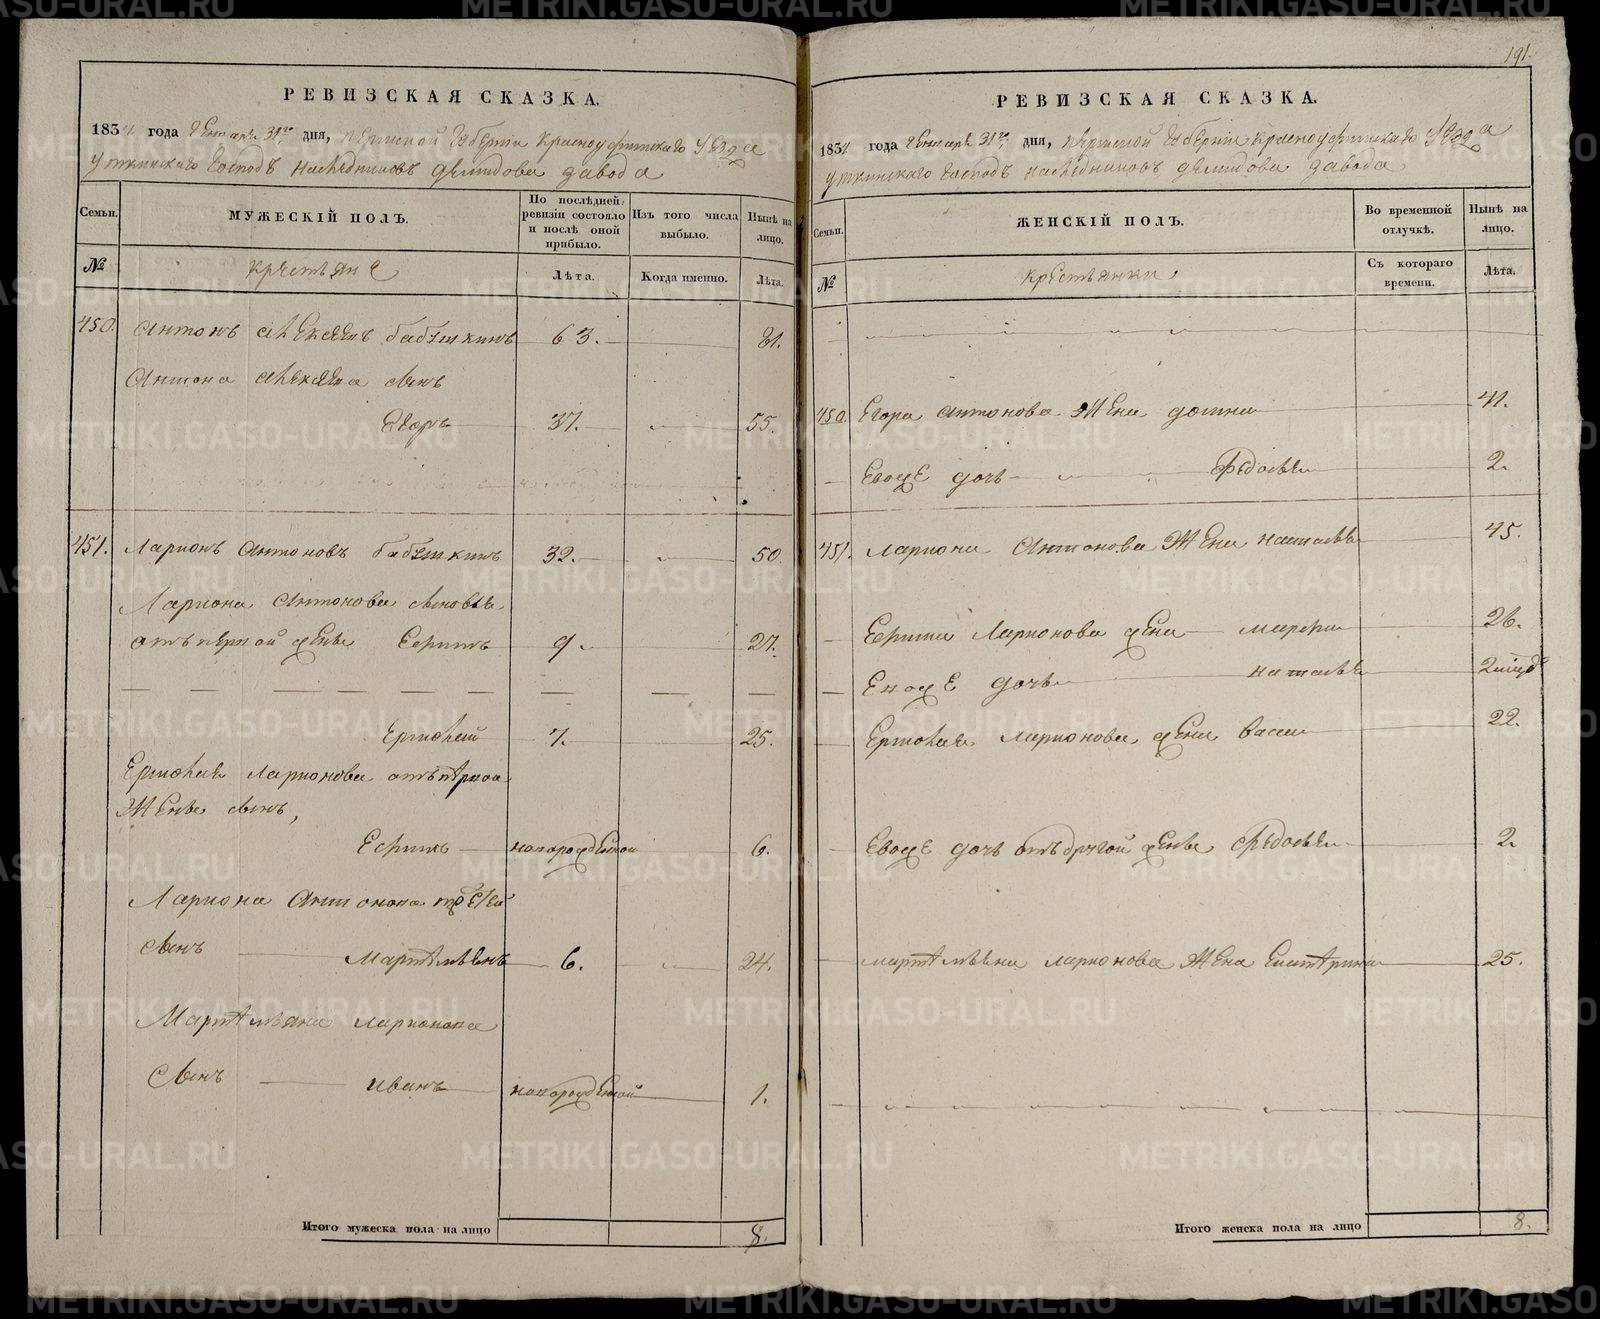 191.
РЕВИЗСКАЯ СКАЗКА.
1834 года Генваря 31го дня, Пермской Губернии Красноуфимскаго уезда
Уткинскаго Господъ наследниковъ Демидова завода
Семьи.
МУЖЕСКІЙ ПОЛЪ.
По послѣдней ревизіи состояло и послѣ оной прибыло.
Изъ того числа выбыло.
Нынѣ на лицо.
№
крестьяне
Лѣта.
Когда именно.
Лѣта.
450. Антонъ Алексеевъ Бабушкинъ 63. 81.
Антона Алексеева сынъ
Егоръ 37. 55.
451. Ларионъ Антоновъ Бабушкинъ 32. 50
Лариона Антонова сыновья
отъ первой жены 9. 27.
Ермолай 7. 25.
Ермолая Ларионова отъ первой
жены сынъ,
новорожденой 6.
Лариона Антонова третей
сынъ Мартемьянъ 6. 24.
Мартемьяна Ларионова
сынъ Иванъ новорожденой 1.
Итого мужеска пола на лицо 8.
РЕВИЗСКАЯ СКАЗКА.
1834 года Генваря 31го дня, Пермской Губернии Красноуфимскаго уезда
Уткинскаго Господъ наследниковъ Демидова завода
Семьи.
ЖЕНСКІЙ ПОЛЪ.
Во временной отлучкѣ.
Нынѣ на лицо.
№
крестьянки
Съ котораго времени.
Лѣта.
450. Егора Антонова жена Домна 41.
Евоже дочь Федосья 2.
451. Лариона Антонова жена Наталья 45.
Ларионова жена Марфа 26.
Евоже дочь Наталья
Ермолая Ларионова жена Васса 22.
Евоже дочь отъ другой жены Федосья 2.
Мартемьяна Ларионова жена Екатерина 25.
Итого женска пола на лицо 8.
METRIKI.GASO-URAL.RU